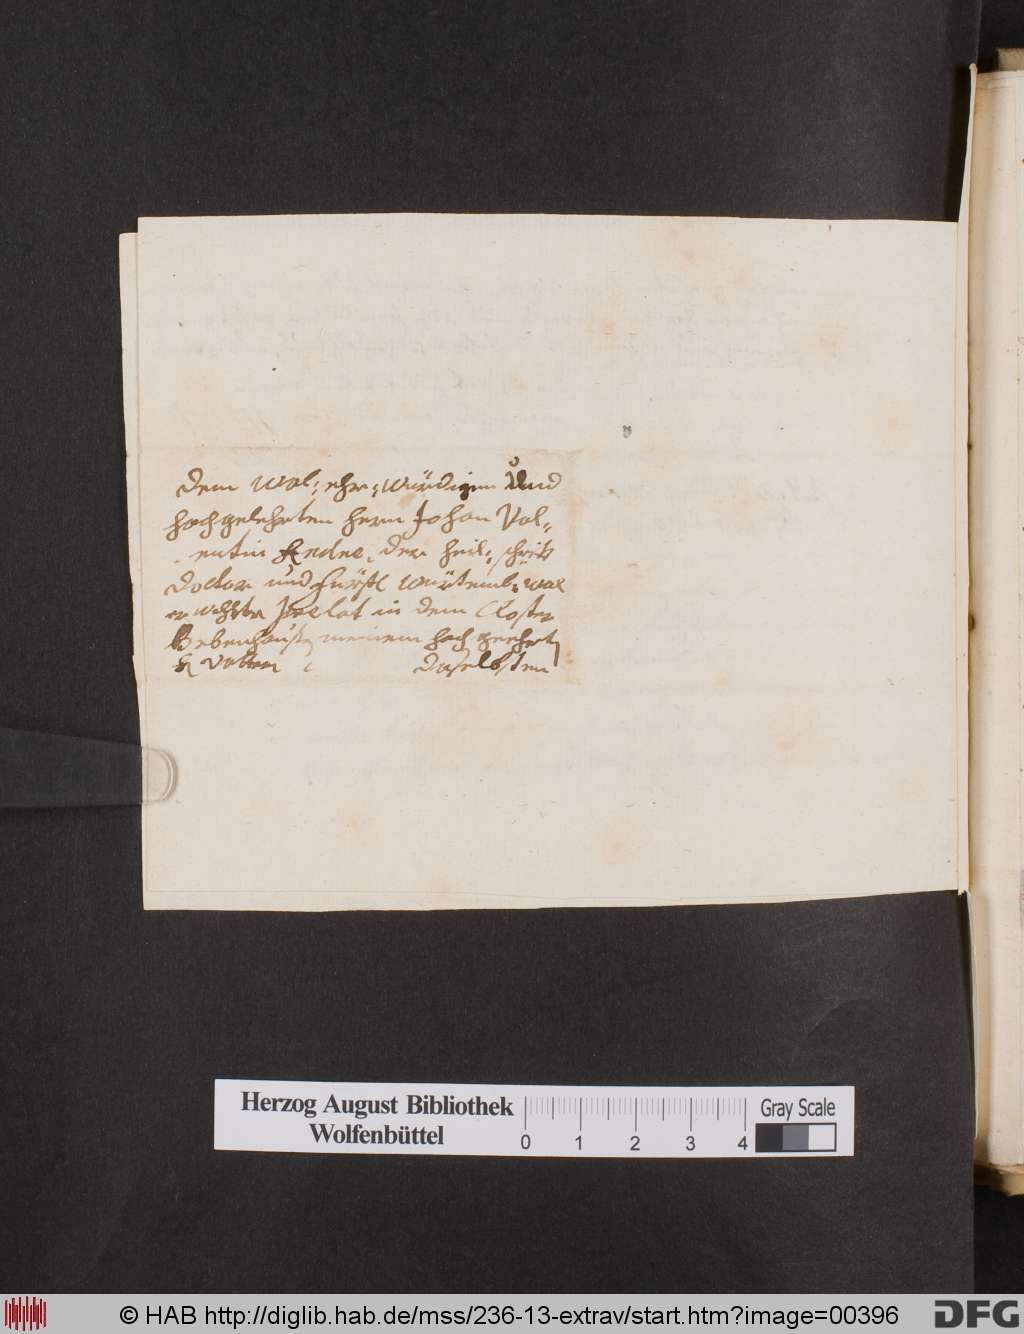 dem wol: ehr: würdigen Und
hochgelehrten herrn Johan Val=
entin Andre, der heil: schrift
doctor und fürstl würtemb: wol
Prelat in dem Closter
Bebenhausen meinem hochgeehrten
H Vattern daselbsten
Herzog August Bibliothek
Wolfenbüttel
0 1 2 3 4
Gray Scale
© HAB http://diglib.hab.de/mss/236-13-extrav/start.htm?image=00396
DFG